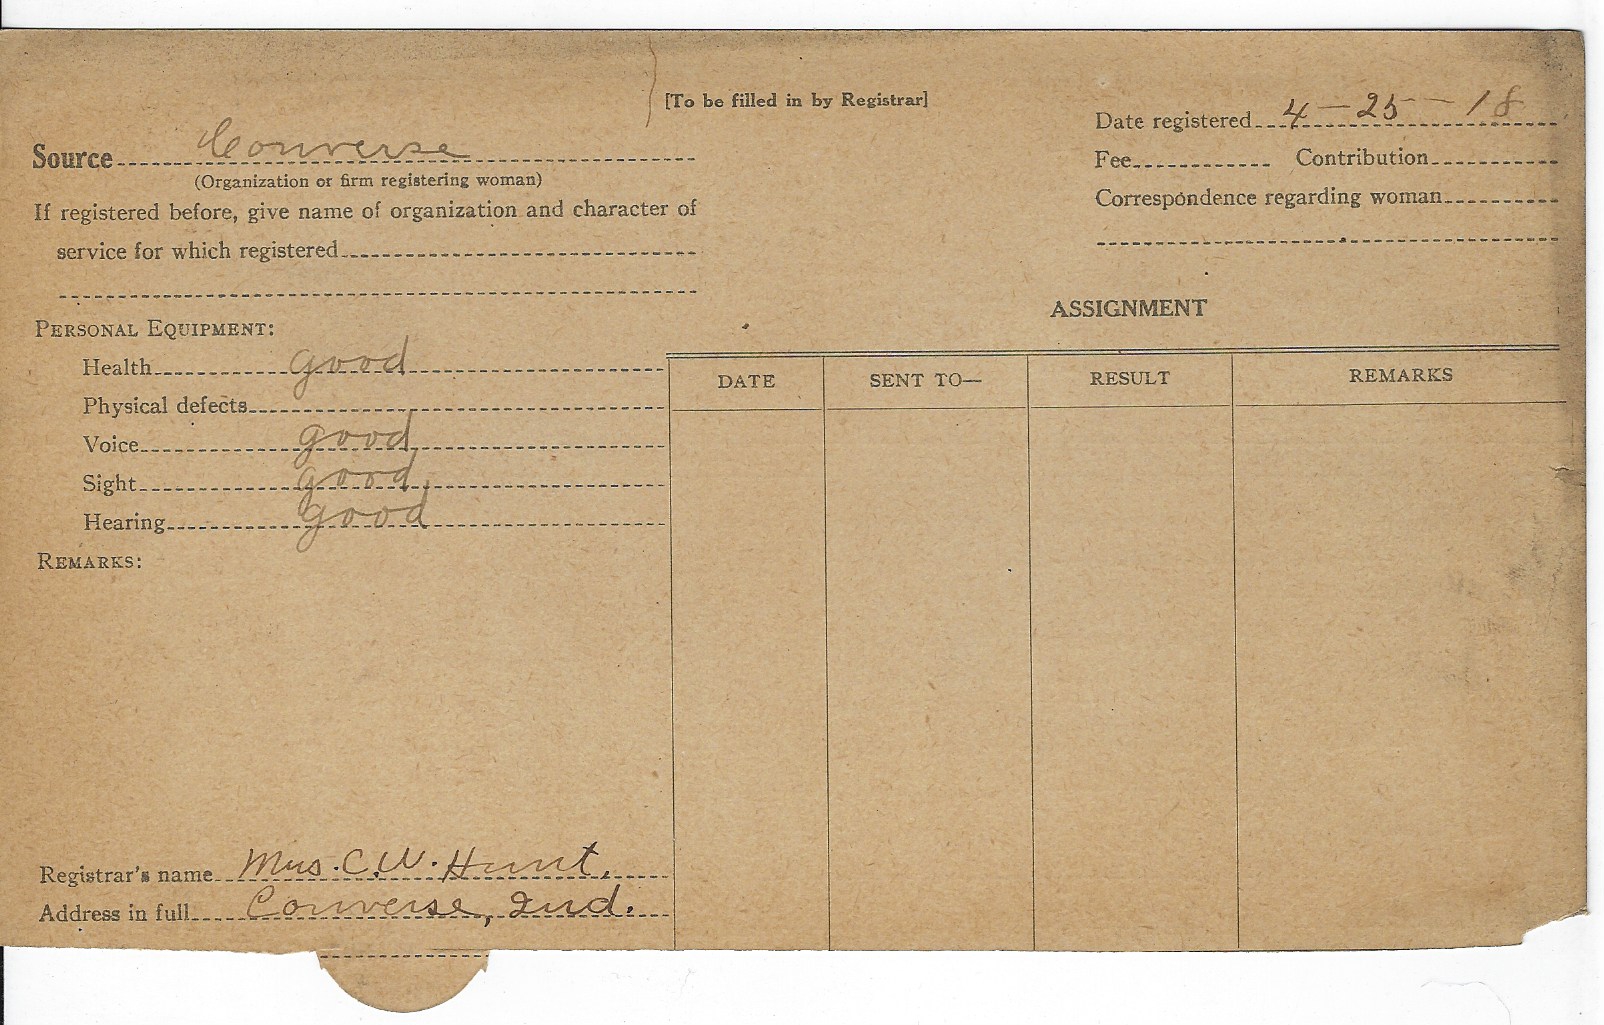 [To be filled in by Registrar]
Date registered 4-25-18
Source Converse
(Organization or firm registering woman)
Fee Contribution
If registered before, give name of organization and character of
service for which registered
Correspondence regarding woman
ASSIGNMENT
PERSONAL EQUIPMENT:
Health good
Physical defects
Voice good
Sight good
Hearing good
REMARKS:
DATE SENT TO— RESULT REMARKS
Registrar's name Mrs. C.W. Hunt.
Address in full Converse, Ind.